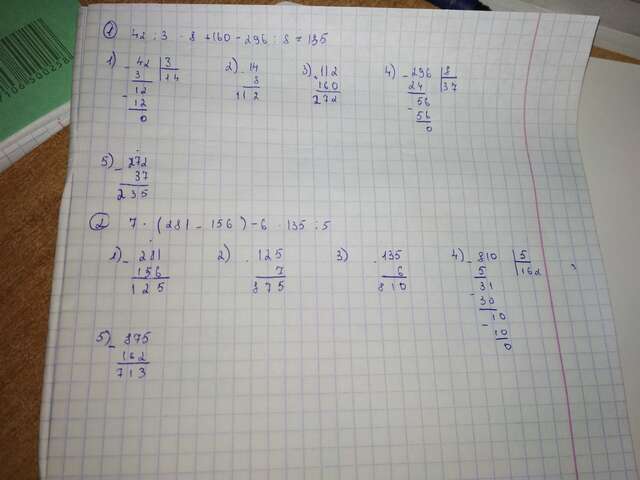 ① 42 : 3 · 8 + 160 - 296 : 8 = 135
1) - 42 | 3
3 | 14
- 12
12
0
2) · 14
8
112
3) + 112
160
272
4) - 296 | 8
24 | 37
- 56
56
0
5) - 272
37
235
② 7 · (281 - 156) - 6 · 135 : 5
1) - 281
156
125
2) · 125
7
875
3) · 135
6
810
4) - 810 | 5
5 | 162
- 31
30
- 10
10
0
5) - 875
162
713